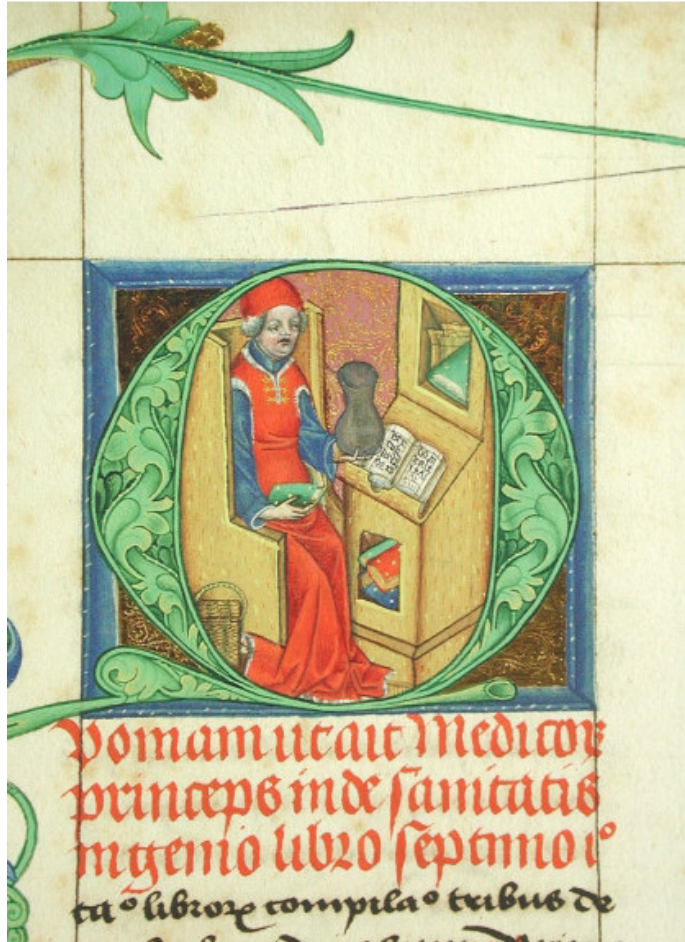 Quoniam ut ait Medicoꝝ
princeps in de sanitatis
ingenio libro septimo iº
taº libroꝝ compilaº tribus de